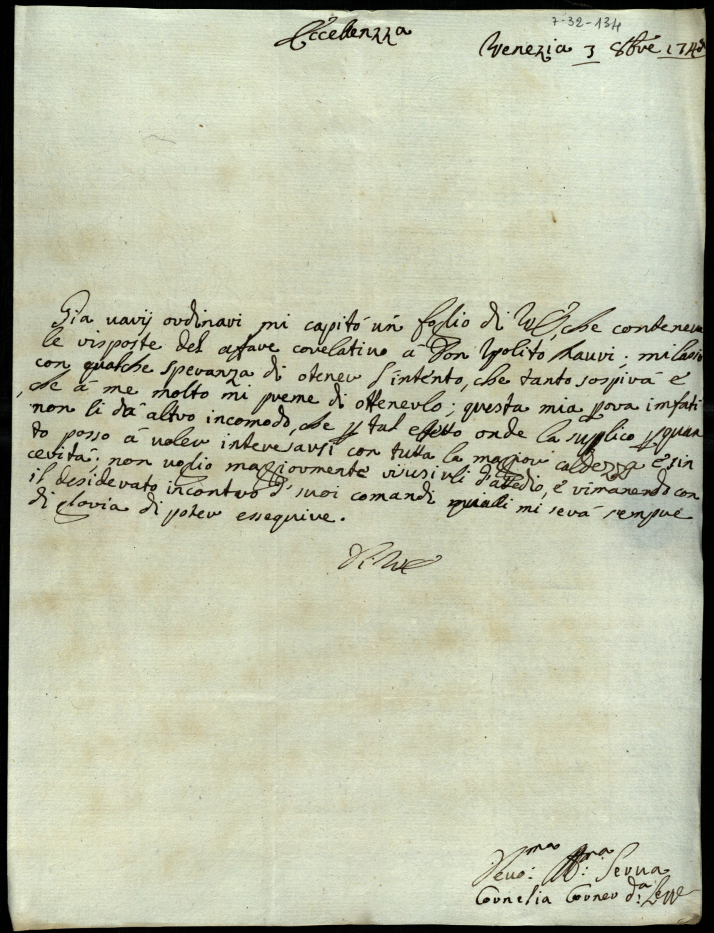 7-32-134
Eccellenzza
Venezia 3 8bre 174
Gia varij ordinari mi capitò un foglio di VE, che conteneva
le risposte del afare corelativo à Don Ipolito Lauri; mi lasiò
con qualche speranza di otener l'intento, che tanto sospirà e
che à me molto mi preme di ottenerlo; questa mia pora imfati
non li dà altro incomodo, che p tal efetto onde la suplico p quan
to posso à voler interesarsi con tutta la magiori caldezza e sin
cerità; non voglio magiormente riusirli d'attedio, e rimanendo con
il desiderato incontro d' suoi comandi quali mi serà sempre
di gloria di poter esseguire.
Di VE
Devo:ma Obb:ma Serva
Cornelia Corner d:a